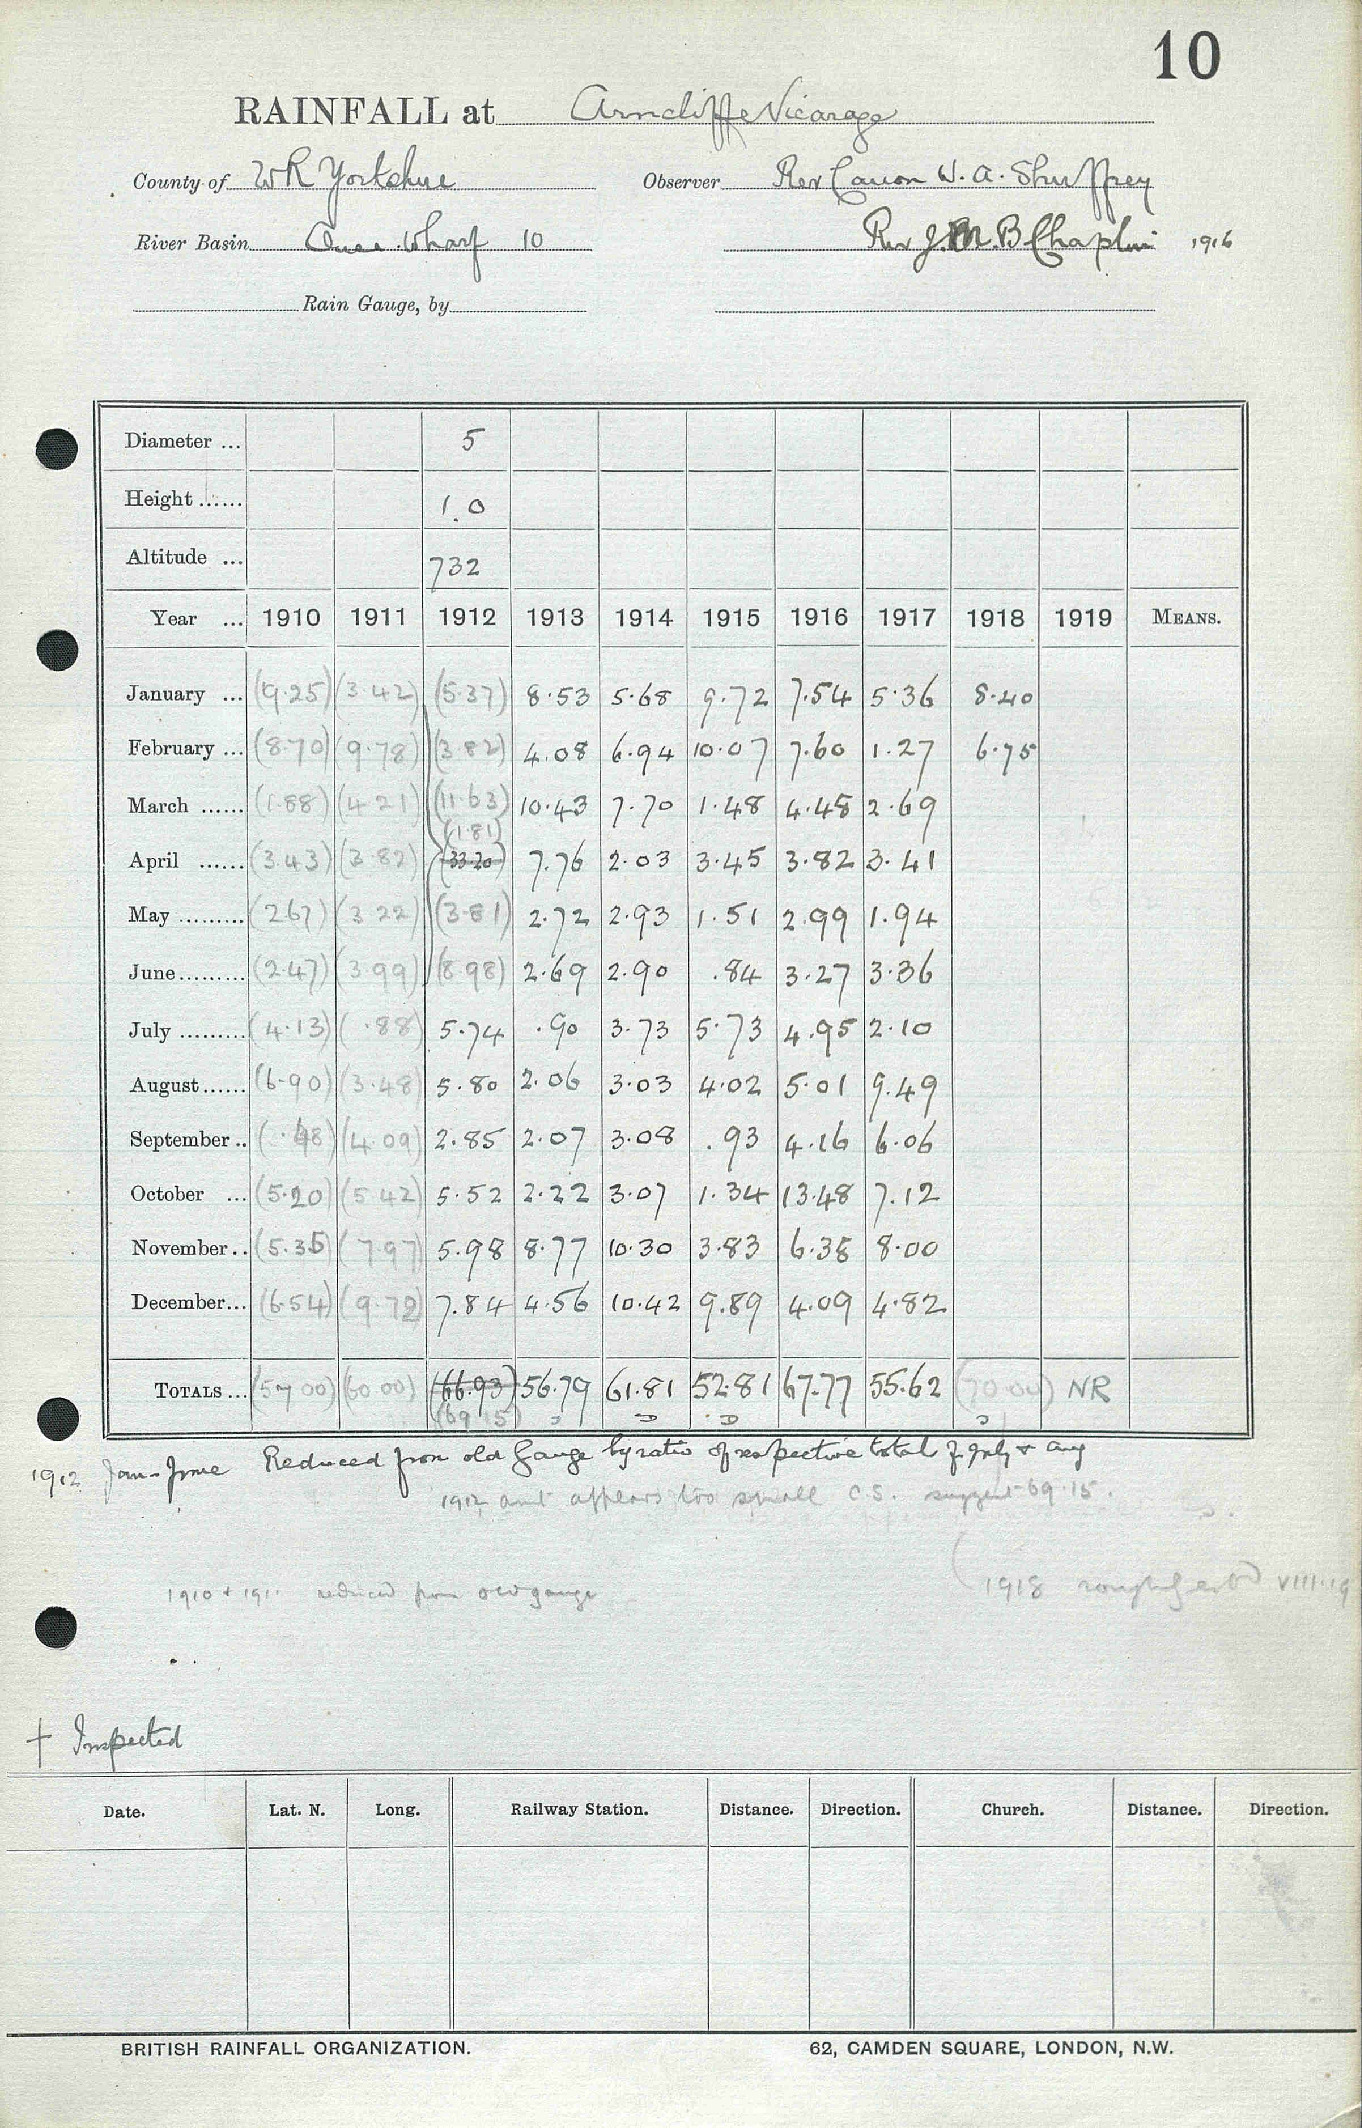 10
RAINFALL at Arncliffe Vicarage
County of WR Yorkshire Observer Rev Canon W. A. Shuffrey
River Basin Ouse Wharf 10 Rev J. M. B Chaplin 1916
Rain Gauge, by
Diameter ... 5
Height ...... 1.0
Altitude ... 732
Year ... 1910 1911 1912 1913 1914 1915 1916 1917 1918 1919 MEANS.
January ... (9.25) (3.42) (5.37) 8.53 5.68 9.72 7.54 5.36 8.40
February ... (8.70) (9.78) (3.82) 4.08 6.94 10.07 7.60 1.27 6.75
March ...... (1.88) (4.21) (11.63) 10.43 7.70 1.48 4.48 2.69
(1.81)
April ...... (3.43) (3.82) (33.20) 7.76 2.03 3.45 3.82 3.41
May ......... (2.67) (3.22) (3.81) 2.72 2.93 1.51 2.99 1.94
June ......... (2.47) (3.99) (8.98) 2.69 2.90 .84 3.27 3.36
July ......... (4.13) (.88) 5.74 .90 3.73 5.73 4.95 2.10
August ...... (6.90) (3.48) 5.80 2.06 3.03 4.02 5.01 9.49
September .. (.48) (4.09) 2.85 2.07 3.08 .93 4.16 6.06
October ... (5.20) (5.42) 5.52 2.22 3.07 1.34 13.48 7.12
November .. (5.35) (7.97) 5.98 8.77 10.30 3.83 6.38 8.00
December ... (6.54) (9.72) 7.84 4.56 10.42 9.89 4.09 4.82
TOTALS ... (57.00) (60.00) (66.93) 56.79 61.81 52.81 67.77 55.62 (70.00) NR
(69.15)
1912 Jan-June Reduced from old Gauge by ratio of respective totals for July & Aug
1912 amt appears too small C.S. suggest 69.15.
1910 + 1911 reduced from old gauge
1918 roughly estd VIII.19
+ Inspected
Date. Lat. N. Long. Railway Station. Distance. Direction. Church. Distance. Direction.
BRITISH RAINFALL ORGANIZATION. 62, CAMDEN SQUARE, LONDON, N.W.